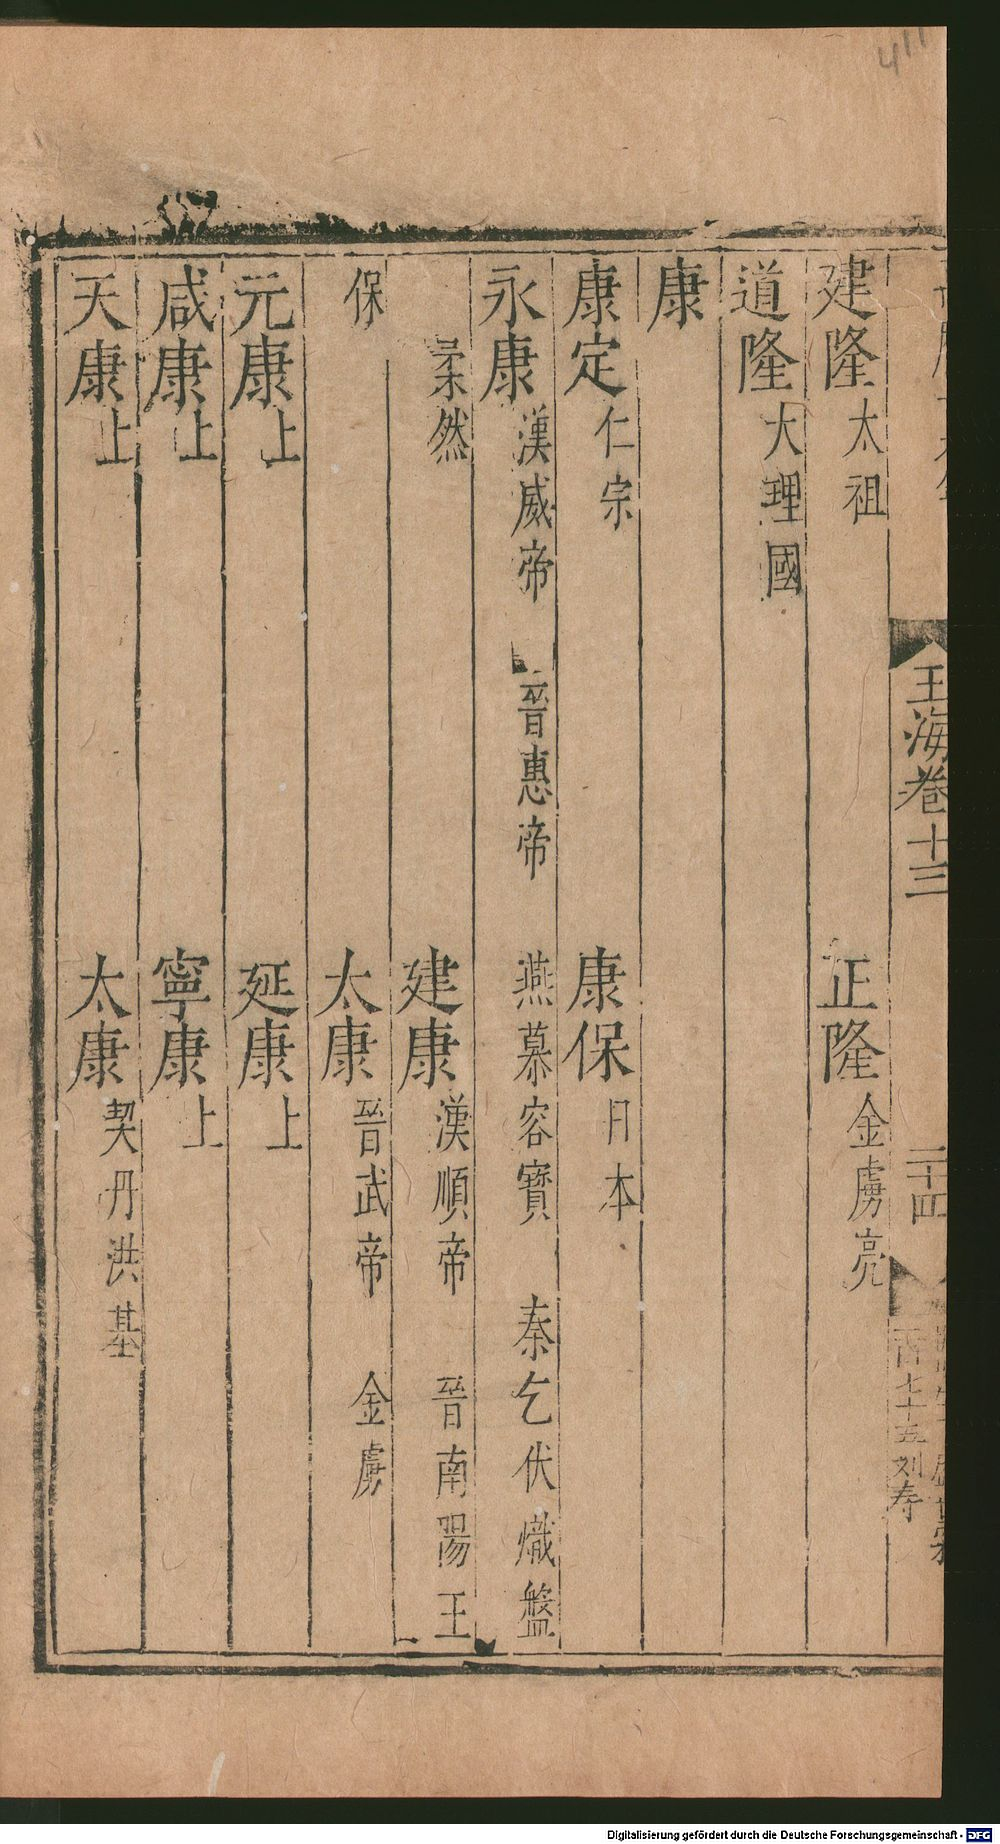 411
玉海卷十三
二十四
百七十五刘寿
建隆太祖 正隆金虜亮
道隆大理國
康
康定仁宗 康保日本
永康漢威帝 晉惠帝 燕慕容寶 秦乞伏熾盤
柔然 建康漢順帝 晉南陽王
保 太康晉武帝 金虜
元康上 延康上
咸康上 寧康上
天康上 太康契丹洪基
Digitalisierung gefördert durch die Deutsche Forschungsgemeinschaft - DFG